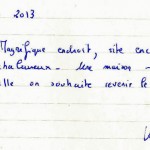 2013
Magnifique endroit, site enc
chaleureux - Une maison -
lle on souhaite revenir le